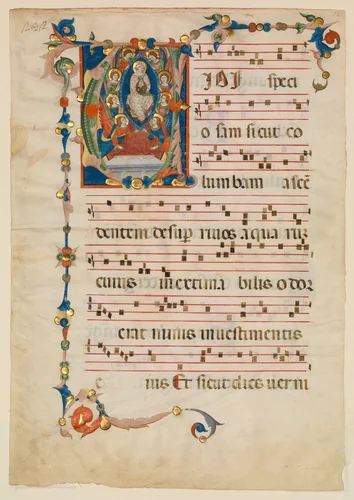 VIDI speci
osam sicut co
lumbam ascē
dentem desup rivos aquaruz
cuius inextima bilis odor
erat nimis in vestimentis
e ius Et sicut dies verni